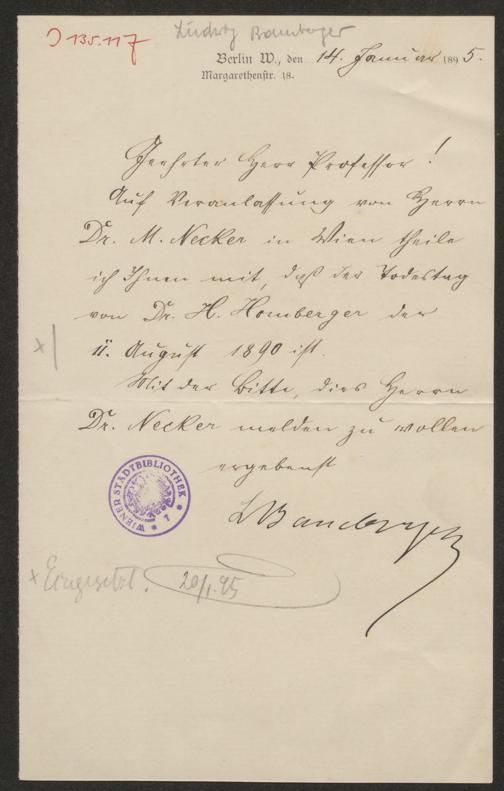 J 135.117
Ludwig Bamberger
Berlin W., den 14. Januar 1895.
Margarethenstr. 18.
Geehrter Herr Professor!
Auf Veranlassung von Herrn
Dr. M. Necker in Wien theile
ich Ihnen mit, daß der Todestag
von Dr. H. Homberger der
11. August 1890 ist.
Mit der Bitte, dies Herrn
Dr. Necker melden zu wollen
ergebenst
LBamberger
WIENER STADTBIBLIOTHEK
* 7 *
x Eingesetzt. 20/1.95